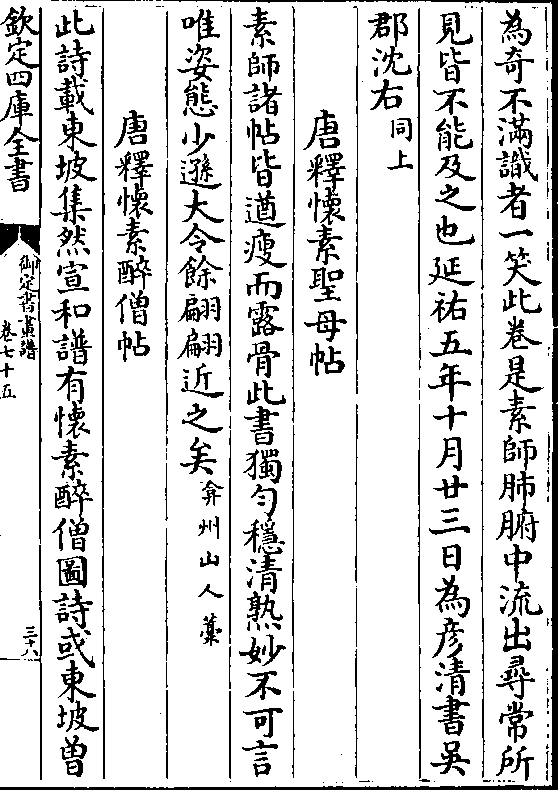 為奇不滿識者一笑此卷是素師肺腑中流出尋常所
見皆不能及之也延祐五年十月廿三日為彦清書吳
郡沈右同上
唐釋懷素聖母帖
素師諸帖皆遒瘦而露骨此書獨匀穩清熟妙不可言
唯姿態少遜大令餘翩翩近之矣弇州山人藳
唐釋懷素醉僧帖
此詩載東坡集然宣和譜有懷素醉僧圖詩或東坡曽
欽定四庫全書
御定書畫譜
卷七十五
三十八